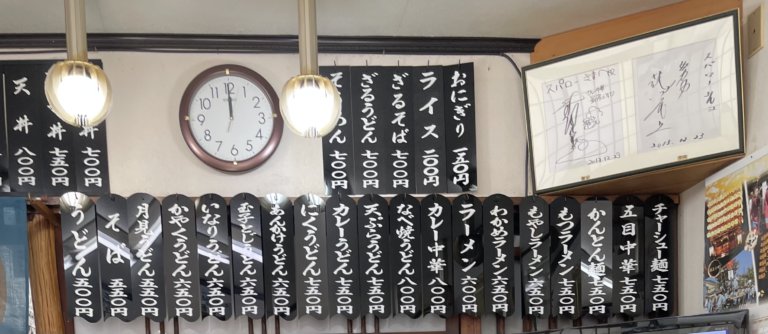 おにぎり 一五〇円
ライス 二〇〇円
ざるそば 七〇〇円
ざるうどん 七〇〇円
七〇〇円
丼 七〇〇円
丼 七五〇円
天丼 八〇〇円
チャーシュー麺 七五〇円
五目中華 七五〇円
かんとん麺 七五〇円
もつラーメン 七五〇円
もやしラーメン 六五〇円
わかめラーメン 六五〇円
ラーメン 六〇〇円
カレー中華 八〇〇円
なべ焼うどん 八〇〇円
天ぷらうどん 七五〇円
カレーうどん 七五〇円
にくうどん 七五〇円
あんかけうどん 六五〇円
玉子とじうどん 六五〇円
いなりうどん 六五〇円
かやくうどん 六五〇円
月見うどん 五五〇円
そば 五五〇円
うどん 五五〇円
12 1 2 3 4 5 6 7 8 9 10 11